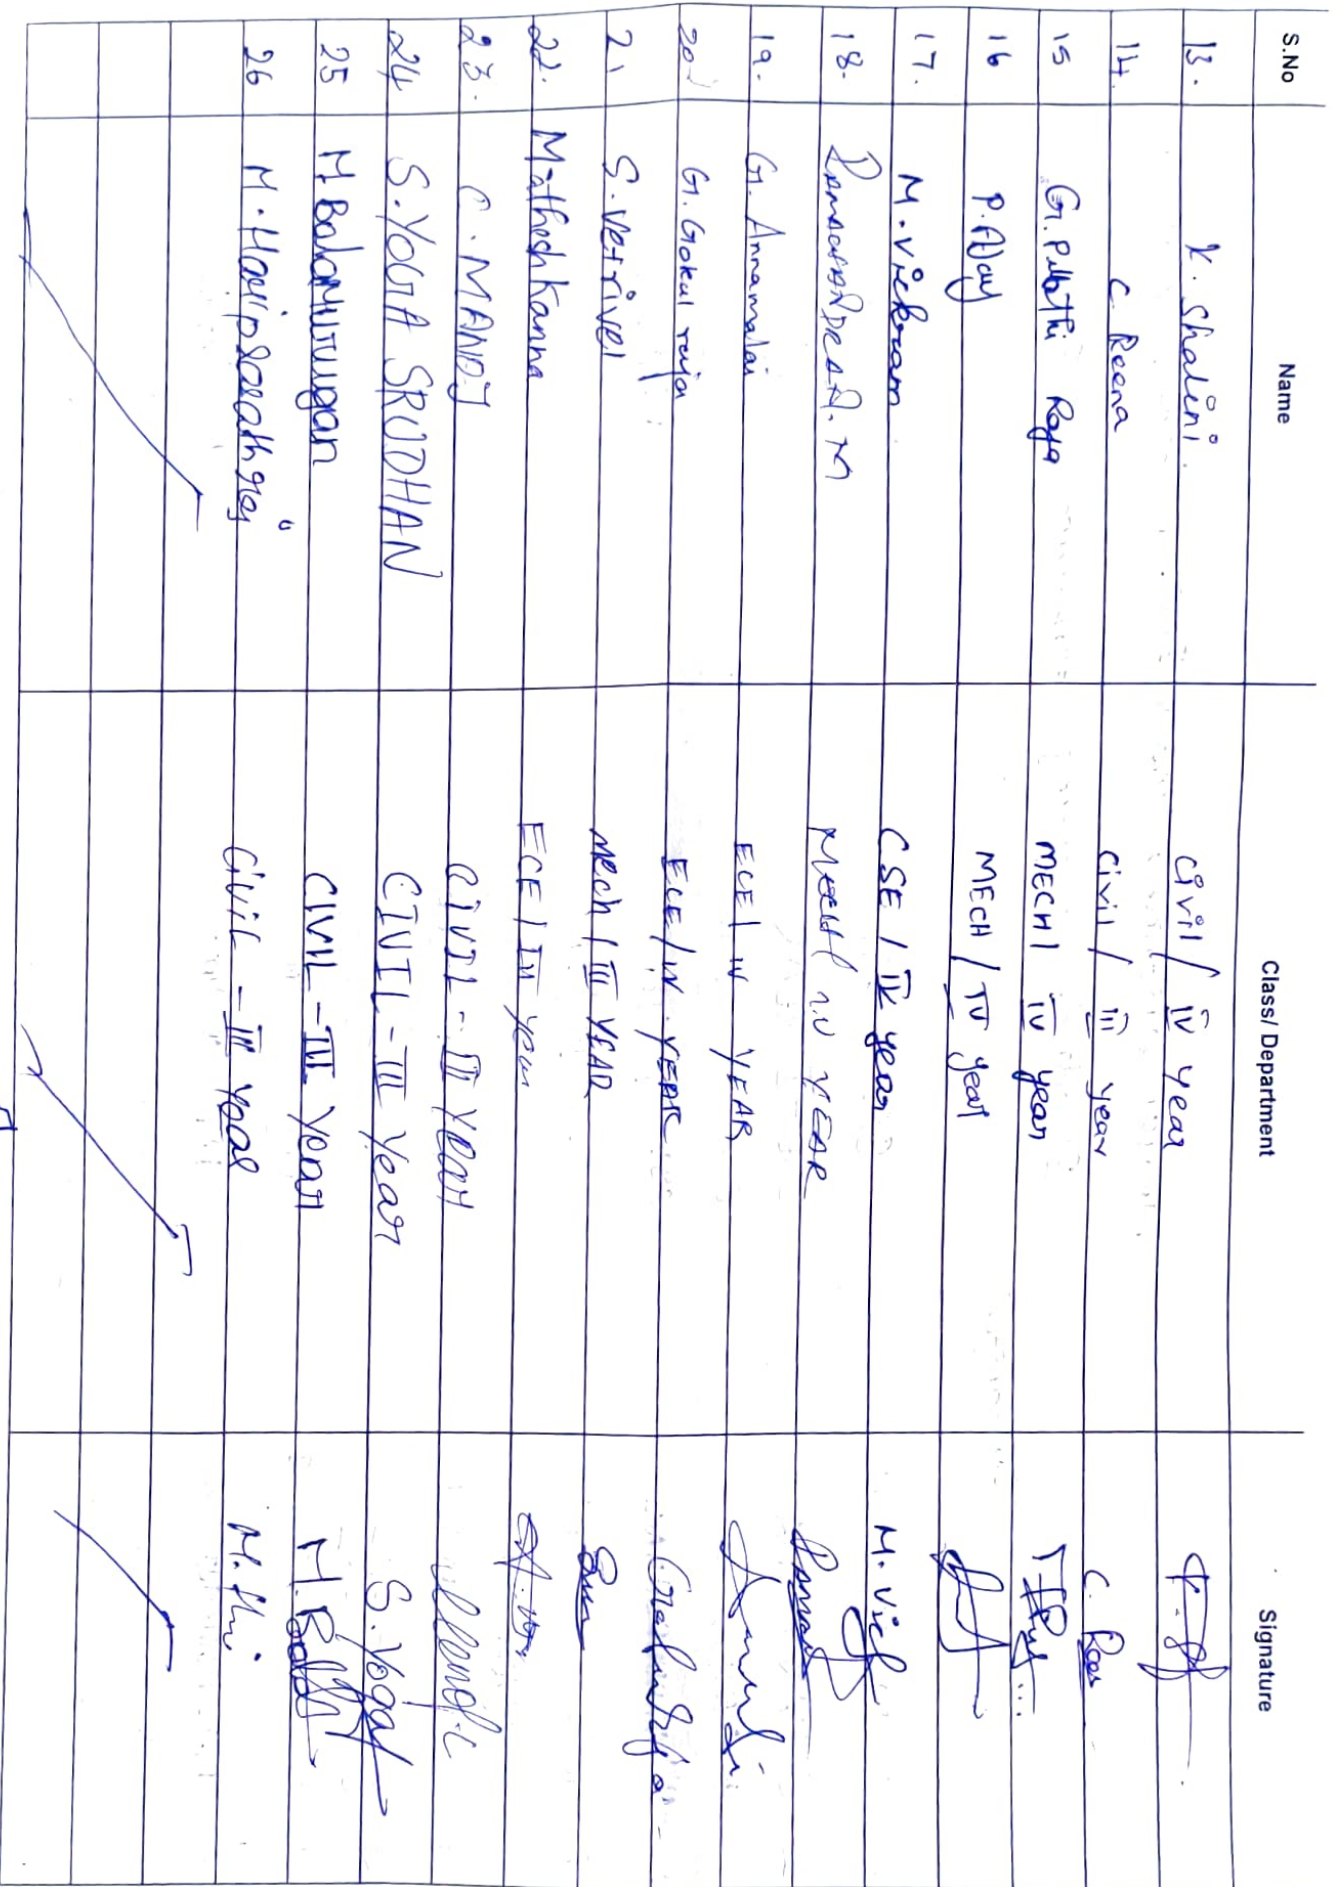 S.No Name Class/ Department Signature
13. K. Shalini. Civil / IV year
14. C. Reena Civil / III year C. Ree
15 G. Raja MECH / IV year
16 P. MECH / IV year
17. M. Vickram CSE / IV year M. Vick
18. RAMACHANDRAN. M MECH IV YEAR
19. G. Annamalai ECE / IV YEAR
20. G. Gokul raja ECE / IV. YEAR
21 S. Vetrivel Mech / III YEAR
22. Matheshkanna ECE / III year
23. C. MANOJ CIVIL - III YEAR Manoj.c
24 S. YOGA SRODHAN CIVIL - III Year S. Yoga
25 M. Balamurugan CIVIL - III Year M. Bala
26 M. CIVIL - III Year